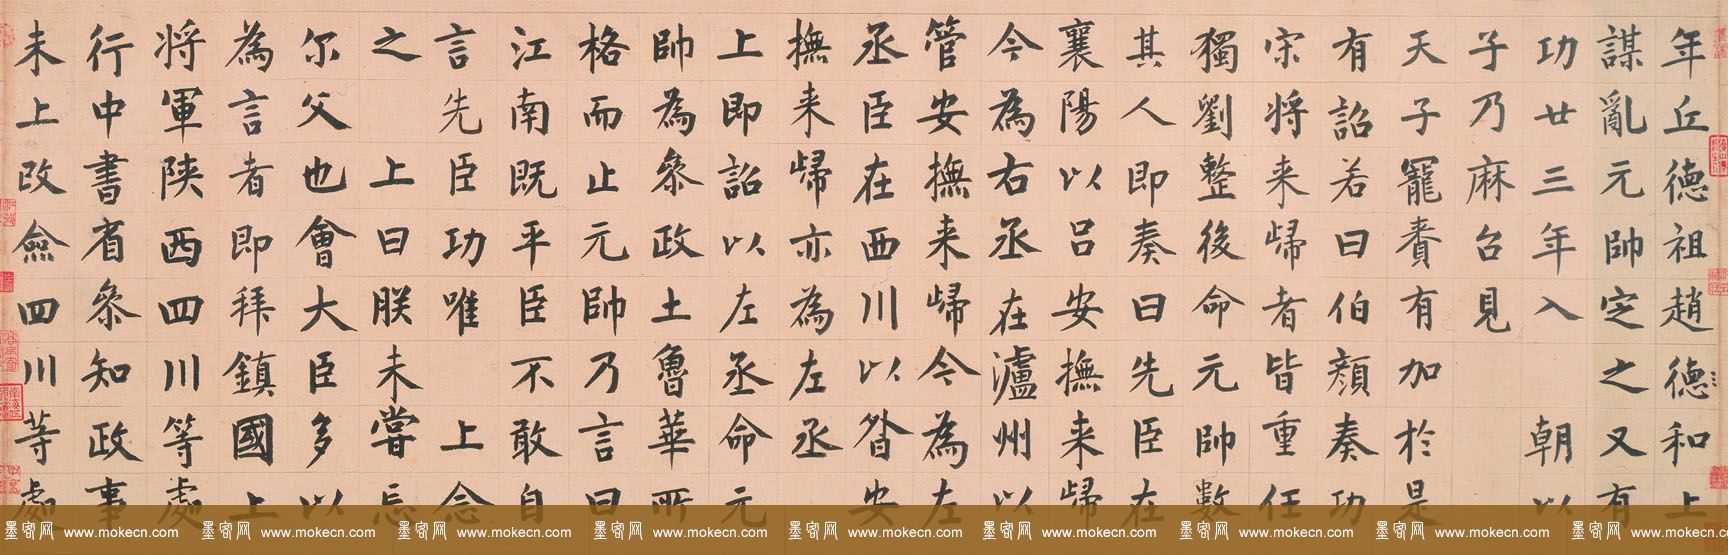 年丘德祖趙德和上
謀亂元帥定之又有
功廿三年入 朝以
子乃麻台見
天子寵賚有加於是
有詔若曰伯顏奏功
宋将来歸者皆重任
獨劉整後命元帥數
其人即奏曰先臣在
襄陽以呂安撫来歸
今為右丞在瀘州以
管安撫来歸今為左
丞臣在西川以昝安
撫来歸亦為左丞
上即詔以左丞命元
帥為叅政土魯華所
格而止元帥乃言曰
江南既平臣不敢自
言先臣功唯 上念
之 上曰朕未嘗忘
尔父也會大臣多以
為言者即拜鎮國上
将軍陕西四川等處
行中書省叅知政事
未上改僉四川等處
墨客网 www.mokecn.com 墨客网 www.mokecn.com 墨客网 www.mokecn.com 墨客网 www.mokecn.com 墨客网 www.mokecn.com 墨客网 www.mokecn.com 墨客网 www.mokecn.com 墨客网 www.mokecn.com 墨客网 www.mokecn.c